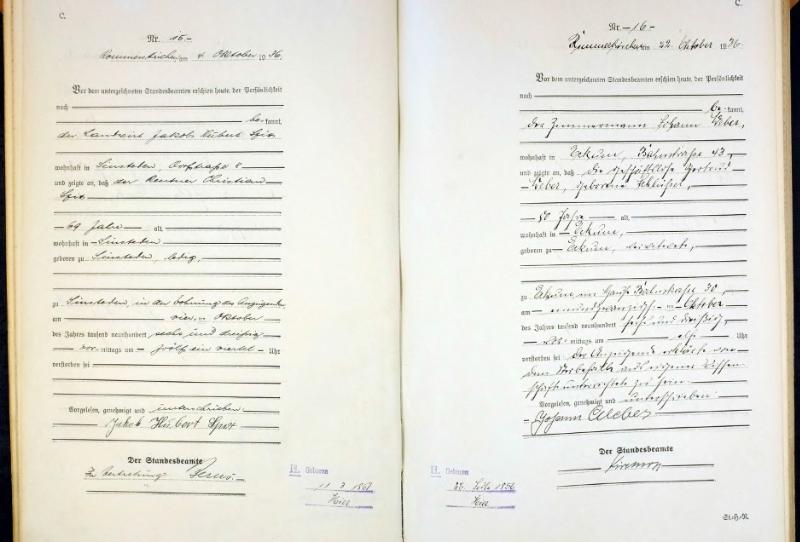 C.
Nr. 15.-
Rommerskirchen am 4 Oktober 1936.
Vor dem unterzeichneten Standesbeamten erschien heute, der Persönlichkeit
nach
be kannt,
der Landwirt Jakob Hubert
wohnhaft in Sinsteden, Dorfstraße 8
und zeigte an, daß der Rentner Christian
- 69 Jahre - alt,
wohnhaft in - Sinsteden
geboren zu Sinsteden, ledig,
zu Sinsteden, in der Wohnung des Anzeigenden
am vier Oktober
des Jahres tausend neunhundert sechs und dreißig
- vor mittags um - zwölf ein viertel - Uhr
verstorben sei
Vorgelesen, genehmigt und unterschrieben
Jakob Hubert
Der Standesbeamte
In Vertretung
H. Geboren
11 3
Hier
C.
Nr. - 16 -
Rommerskirchen am 22. Oktober 1936.
Vor dem unterzeichneten Standesbeamten erschien heute, der Persönlichkeit
nach
be kannt,
der Zimmermann Johann Weber,
wohnhaft in Eckum, Bahnstraße 43,
und zeigte an, daß die Gertrud
Weber, geborene
- 80 Jahre - alt,
wohnhaft in - Eckum,
geboren zu - Eckum, verwitwete,
zu Eckum im Hause Bahnstraße 30,
am - einundzwanzig - Oktober
des Jahres tausend neunhundert sechs und dreißig,
mittags um elf Uhr
verstorben sei Der Anzeigende erklärte von
dem Sterbefalle aus eigener Wissen-
schaft unterrichtet zu sein.
Vorgelesen, genehmigt und unterschrieben
Johann Weber
Der Standesbeamte
H. Geboren
22. 1856
Hier
St.-H./R.